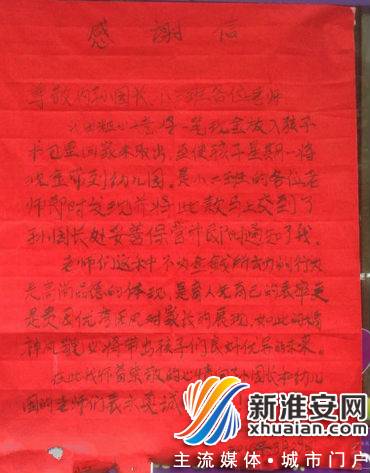 感谢信
尊敬的孙园长、小二班各位老师
我因粗心一意将一笔现金放入孩子
书包里面裁未取出，至使孩子星期一将
现金带到幼儿园。是小二班的各位老
师即时发现并将此款马上交到了
孙园长处妥善保管并即时通知了我。
老师们这种不为金钱所动的行为
是高尚品德的体现，是育人先育己的表率更
是贵园优秀园风对家长的展现，如此的精
神风貌必将带出孩子们良好优异的未来。
在此我怀着崇敬的心情向孙园长和幼儿
园的老师们表示真诚
新淮安网
主流媒体·城市门户